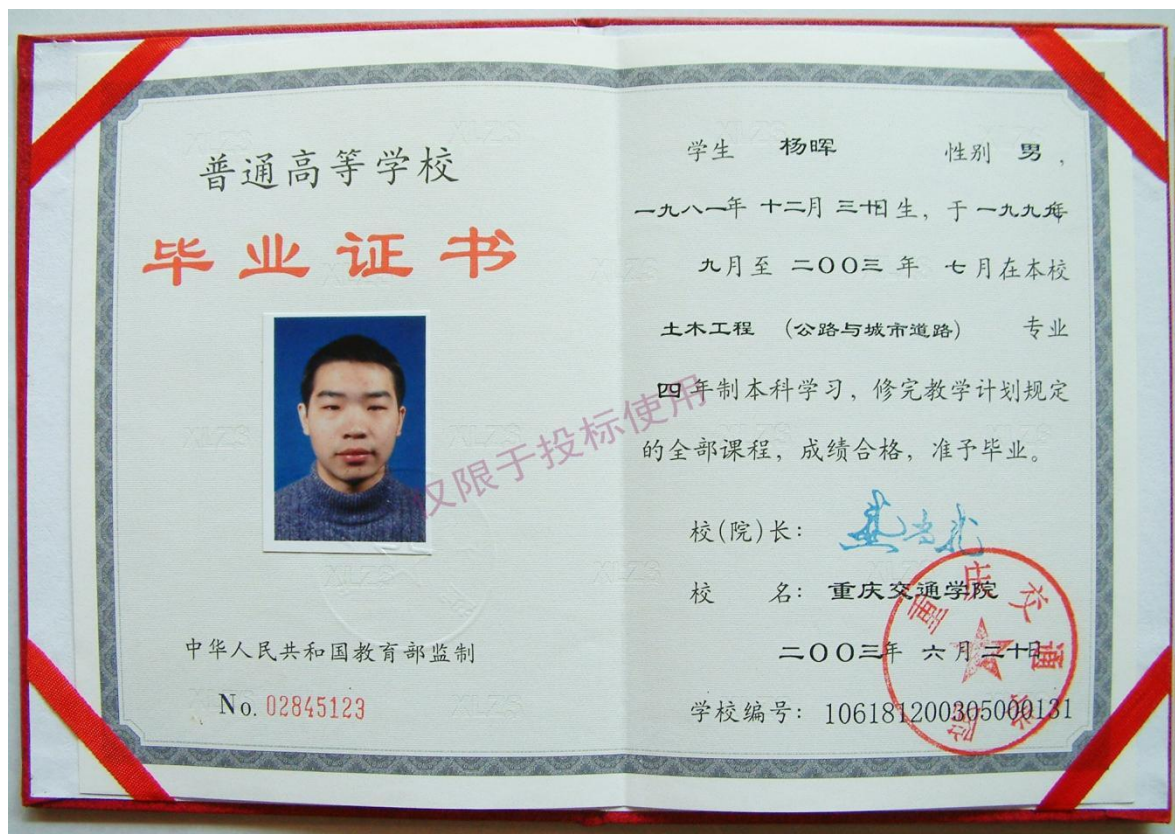 普通高等学校
毕业证书
仅限于投标使用
中华人民共和国教育部监制
No. 02845123
学生 杨晖 性别 男,
一九八一年 十二月 三十日生, 于一九九九年
九月至 二〇〇三 年 七月在本校
土木工程 (公路与城市道路) 专业
四年制本科学习, 修完教学计划规定
的全部课程, 成绩合格, 准予毕业。
校(院)长:
校 名: 重庆交通学院
二〇〇三年 六月 二十日
学校编号: 106181200305000131
重庆交通学院
XLZS